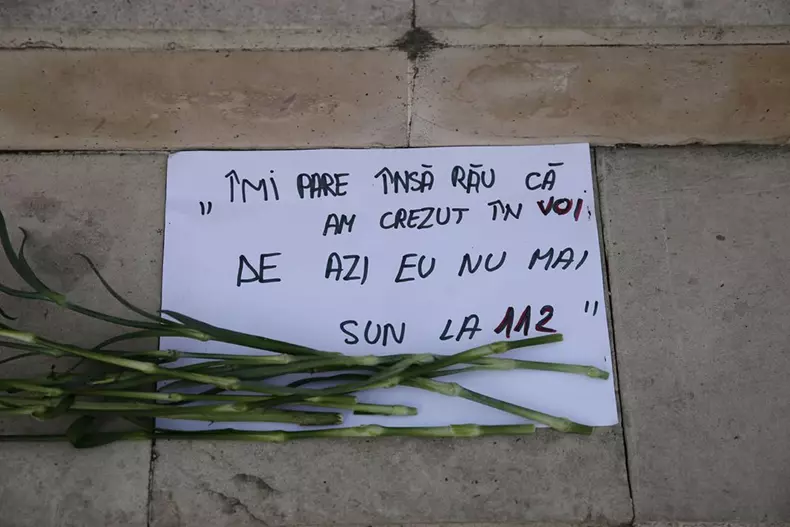 „ ÎMI PARE ÎNSĂ RĂU CĂ
AM CREZUT ÎN VOI.
DE AZI EU NU MAI
SUN LA 112 ”